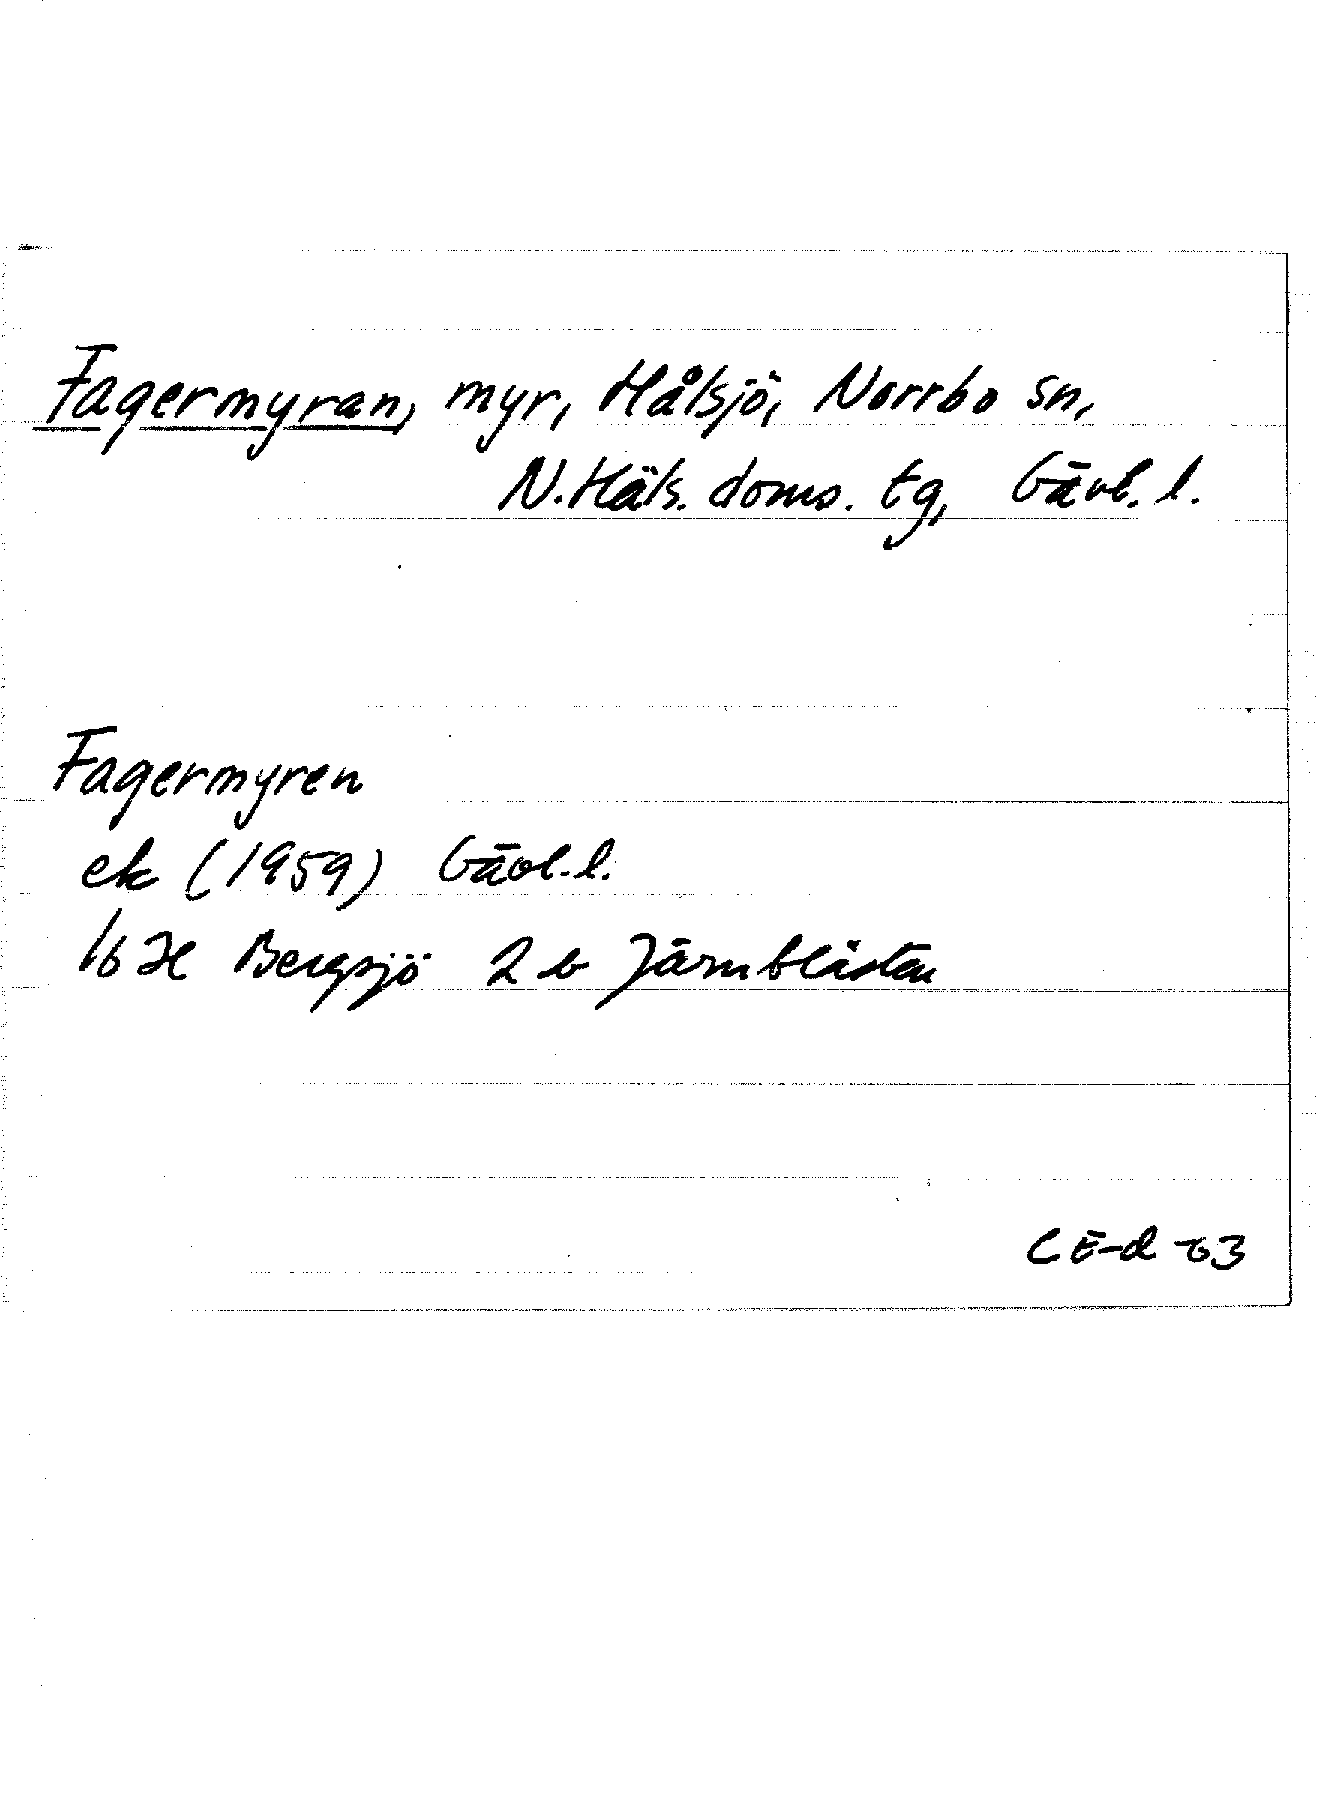 Fagermyran, myr, Hålsjö, Norrbo sn,
N. Häls. doms. tg, Gävl. l.
Fagermyren
ek (1959) Gävl. l.
16 H Bergsjö 2 b Järnblästen
CE-d -63